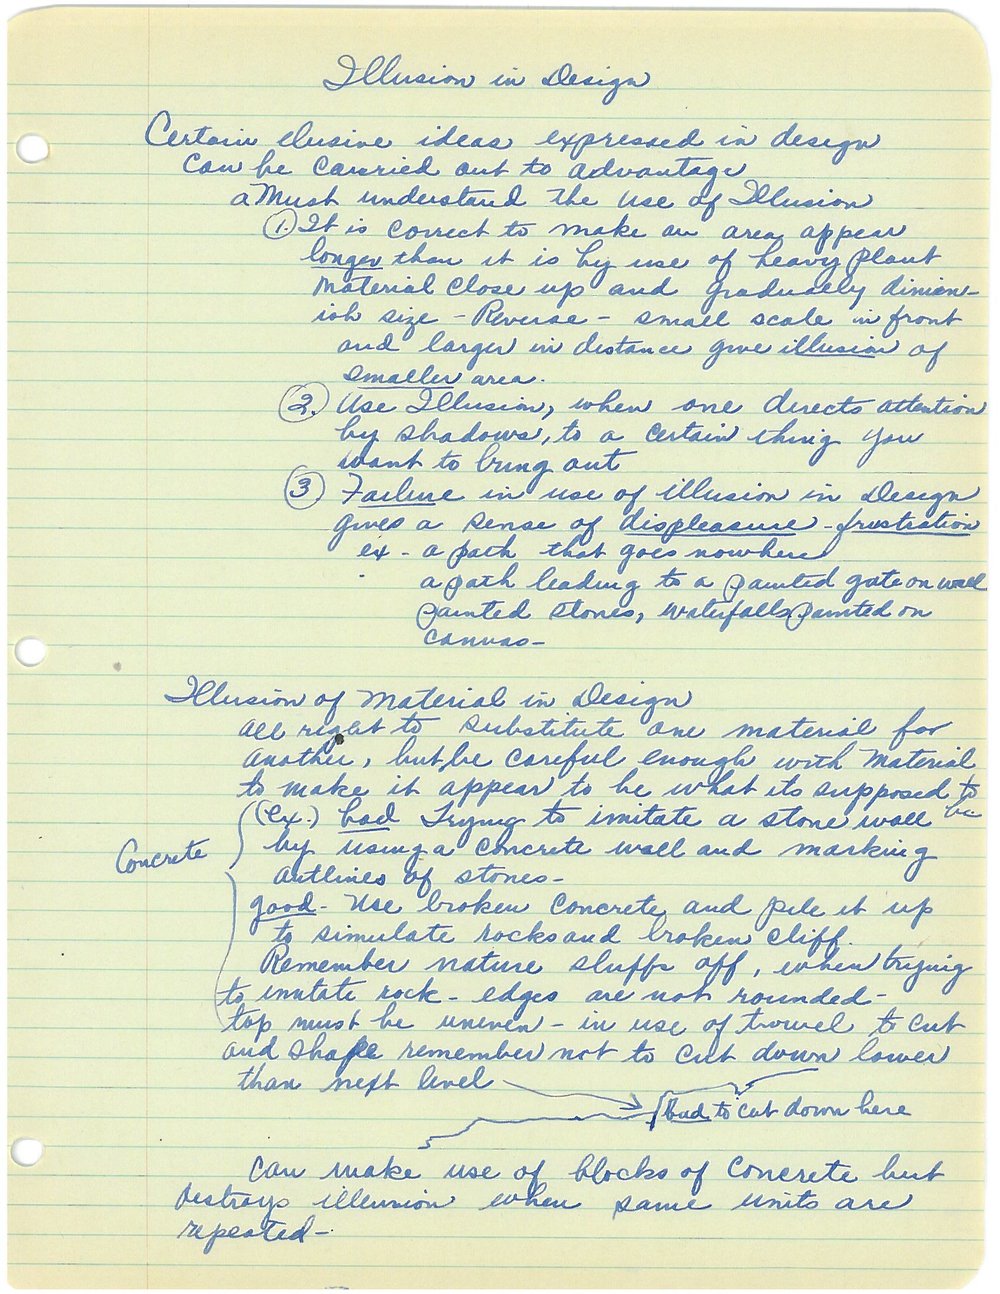 Illusion in Design
Certain elusive ideas expressed in design
can be carried out to advantage
a Must understand the use of Illusion
1. It is correct to make an area appear
longer than it is by use of heavy plant
material close up and gradually dimin-
ish size - Reverse - small scale in front
and larger in distance give illusion of
smaller area.
2. Use Illusion, when one directs attention
by shadows, to a certain thing you
want to bring out
3 Failure in use of illusion in Design
gives a sense of displeasure - frustration
ex - a path that goes nowhere
a path leading to a painted gate on wall
painted stones, waterfalls painted on
canvas -
Illusion of Material in Design
all right to substitute one material for
another, but be careful enough with Material
to make it appear to be what its supposed to
be
(ex.) bad Trying to imitate a stone wall
by using a concrete wall and marking
Concrete
outlines of stones -
good - Use broken concrete and pile it up
to simulate rocks and broken cliff.
Remember nature sluffs off, when trying
to imitate rock - edges are not rounded -
top must be uneven - in use of trowel to cut
and shape remember not to cut down lower
than next level
bad to cut down here
can make use of blocks of concrete but
destroys illusion when same units are
repeated -